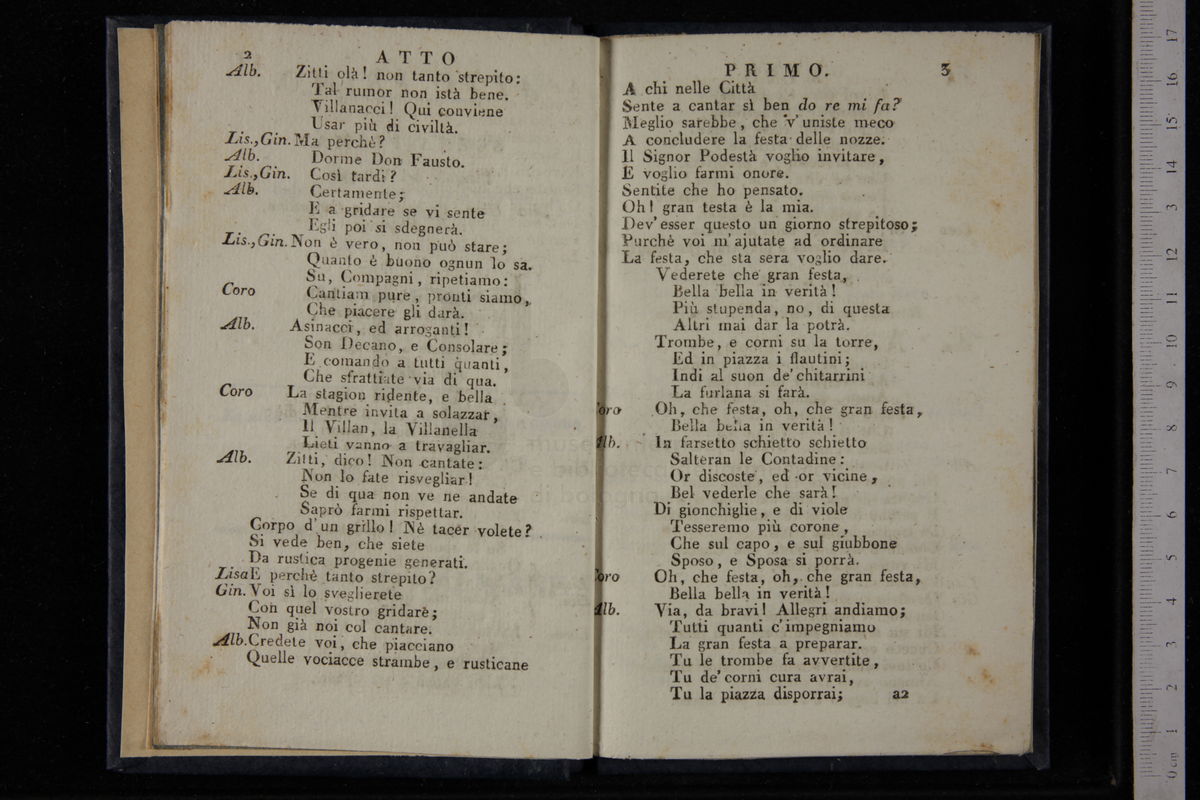 2 ATTO
Alb. Zitti olà! non tanto strepito:
Tal rumor non istà bene.
Villanacci! Qui conviene
Usar più di civiltà.
Lis., Gin. Ma perchè?
Alb. Dorme Don Fausto.
Lis., Gin. Così tardi?
Alb. Certamente;
E a gridare se vi sente
Egli poi si sdegnerà.
Lis., Gin. Non è vero, non può stare;
Quanto è buono ognun lo sa.
Su, Compagni, ripetiamo:
Coro Cantiam pure, pronti siamo,
Che piacere gli darà.
Alb. Asinacci, ed arroganti!
Son Decano, e Consolare;
E comando a tutti quanti,
Che sfrattiate via di qua.
Coro La stagion ridente, e bella
Mentre invita a solazzar,
Il Villan, la Villanella
Lieti vanno a travagliar.
Alb. Zitti, dico! Non cantate:
Non lo fate risvegliar!
Se di qua non ve ne andate
Saprò farmi rispettar.
Corpo d'un grillo! Nè tacer volete?
Si vede ben, che siete
Da rustica progenie generati.
Lisa E perchè tanto strepito?
Gin. Voi sì lo sveglierete
Con quel vostro gridare;
Non già noi col cantare.
Alb. Credete voi, che piacciano
Quelle vociacce strambe, e rusticane
PRIMO. 3
A chi nelle Città
Sente a cantar sì ben do re mi fa?
Meglio sarebbe, che v'uniste meco
A concludere la festa delle nozze.
Il Signor Podestà voglio invitare,
E voglio farmi onore.
Sentite che ho pensato.
Oh! gran testa è la mia.
Dev'esser questo un giorno strepitoso;
Purchè voi m'ajutate ad ordinare
La festa, che sta sera voglio dare.
Vederete che gran festa,
Bella bella in verità!
Più stupenda, no, di questa
Altri mai dar la potrà.
Trombe, e corni su la torre,
Ed in piazza i flautini;
Indi al suon de'chitarrini
La furlana si farà.
Coro Oh, che festa, oh, che gran festa,
Bella bella in verità!
Alb. In farsetto schietto schietto
Salteran le Contadine:
Or discoste, ed or vicine,
Bel vederle che sarà!
Di gionchiglie, e di viole
Tesseremo più corone,
Che sul capo, e sul giubbone
Sposo, e Sposa si porrà.
Coro Oh, che festa, oh, che gran festa,
Bella bella in verità!
Alb. Via, da bravi! Allegri andiamo;
Tutti quanti c'impegniamo
La gran festa a preparar.
Tu le trombe fa avvertite,
Tu de'corni cura avrai,
Tu la piazza disporrai; a2